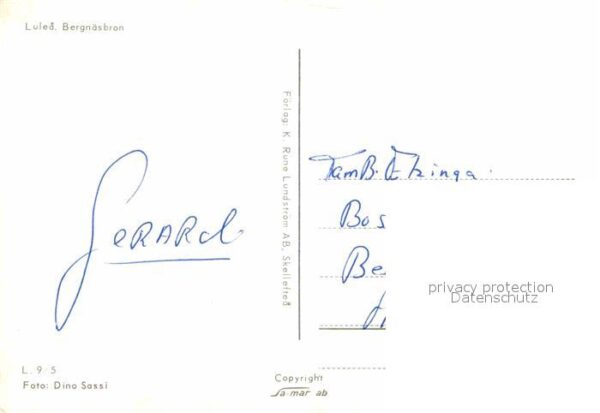 Luleå, Bergnäsbron
Gerard
Förlag: K. Rune Lundström AB, Skellefteå
Fam B. Elzinga.
Bos
Be
privacy protection
Datenschutz
L. 9 5
Foto: Dino Sassi
Copyright
sa-mär ab